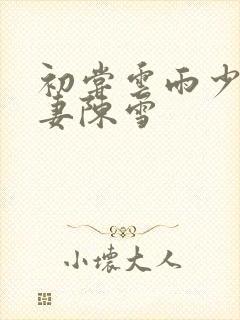 初尝云雨少
妻陈雪
小壞大人